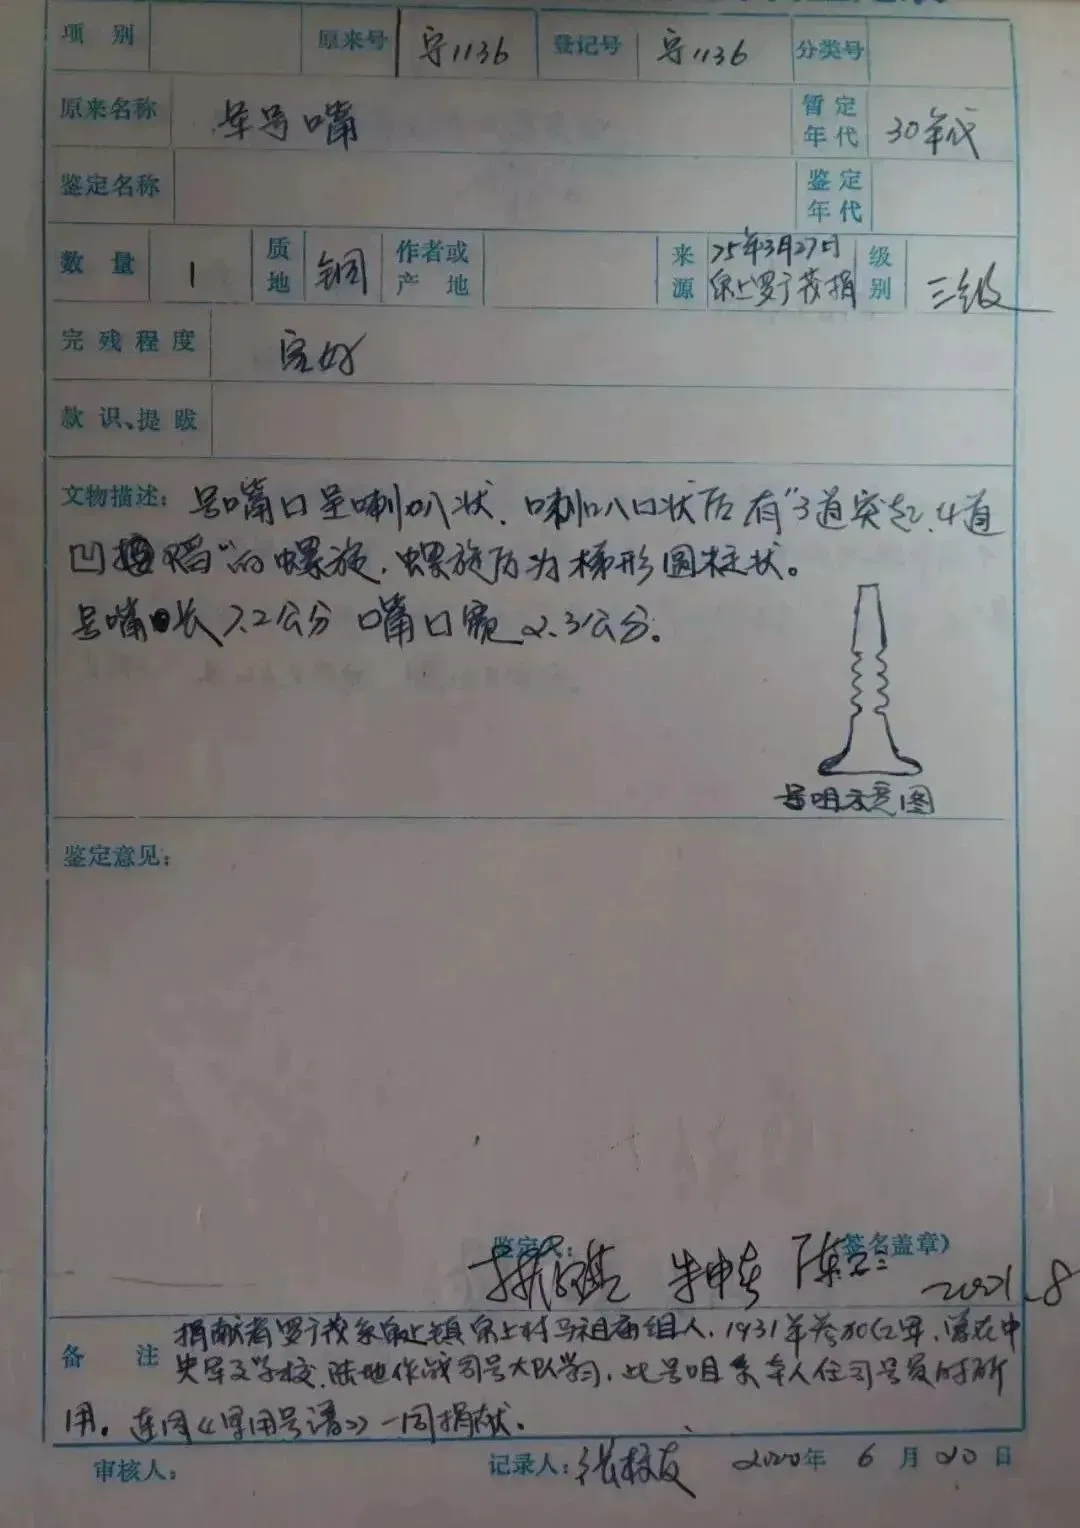 项 别 原来号 宁1136 登记号 宁1136 分类号
原来名称 军号嘴 暂定年代 30年代
鉴定名称 鉴定年代
数 量 1 质地 铜 作者或产地 来源 75年3月27日 泉上罗广茂捐 级别 三级
完 残 程 度 完好
款 识、提 跋
文物描述: 号嘴口呈喇叭状,喇叭口状后有“3道突起、4道
凹槽”的螺旋,螺旋后为梯形圆柱状。
号嘴长7.2公分 嘴口宽2.3公分。
号咀示意图
鉴定意见:
鉴定人: 朱申 陈 (签名盖章)
2021.8
备 注 捐献者罗广茂系泉上镇泉上村马祖庙组人,1931年参加红军,曾在中
央军又学校、陆地作战司号大队学习,此号咀系本人任司号员时所
用。连同《军用号谱》一同捐献。
审核人: 记录人:张 2020年 6 月 20 日